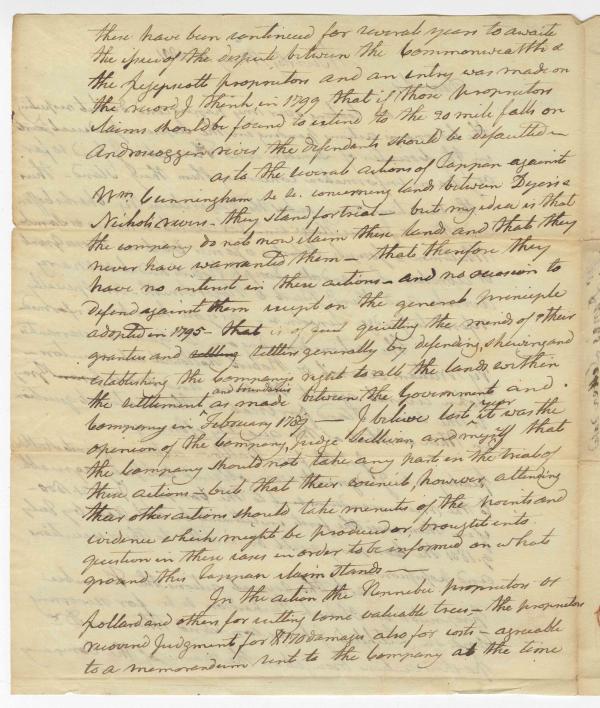 these have been continued for several years to await
the issue of the dispute between the Commonwealth &
the Pejepscott proprietors and an entry was made on
the record I think in 1799 that if those proprietors
claims should be found to extend to the 20 mile falls on
Androscoggin river the defendants should be defaulted —
as to the several actions of Tappan against
Wm Cunningham &c &c. concerning lands between Dyers &
Nichols rivers — they stand for trial — but my idea is that
the company do not now claim these lands and that they
never have warranted them — that therefore they
have no interest in these actions — and no occasion to
defend against them except on the general principle
adopted in 1795 — that is of quieting the minds of their
grantees and settlers generally by defending, shewing and
establishing the Companys right to all the lands within
the settlement and boundaries as made between the Government and
Company in February 1789 — I believe last year it was the
opinion of the Company, Judge Sullivan, and myself that
the Company should not take any part in the trial of
these actions — but that their council, however, attending
their other actions should take minutes of the points and
evidence which might be produced or brought into
question in these cases in order to be informed on what
ground this Tappan claim stands —
In the action the Kennebec proprietors vs
pollard and others for cutting some valuable trees — the proprietors
recoverd Judgment for $170 damages also for costs — agreeable
to a memorandum sent to the Company at the time